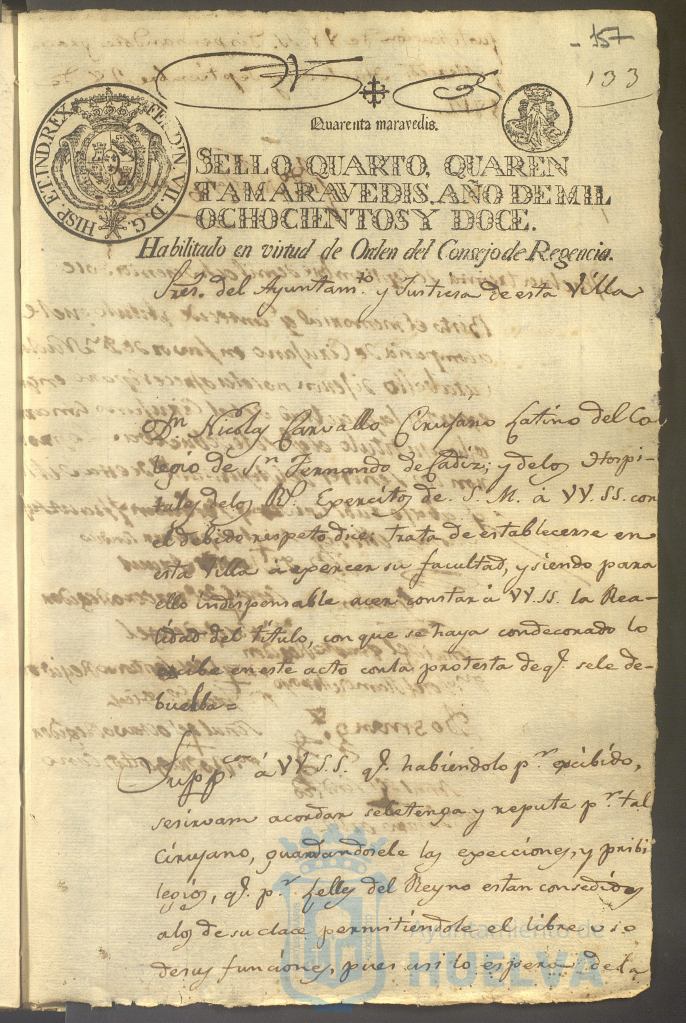 157
133
HISP. ET IND. REX FERDIN. VII. D. G.
Quarenta maravedis.
SELLO QUARTO, QUAREN
TA MARAVEDIS, AÑO DE MIL
OCHOCIENTOS Y DOCE.
Habilitado en virtud de Orden del Consejo de Regencia.
Sres. del Ayuntam.to y Justicia de esta Villa
Dn Nicolas Carvallo Cirujano Latino del Co-
legio de Sn. Fernando de Cadiz; y delos Hospi-
tales delos Rs. Exercitos de S. M. á VV. SS. con
el debido respeto dice: trata de establecerse en
esta Villa á exercer su facultad, y siendo para
ello indispensable acer constar á VV. SS. la Rea-
lidad del titulo, con que se haya condecorado lo
exibe en este acto con la protesta de q.e sele de-
buelba=
Supp.ca á VV. SS. q.e habiéndolo p.r exibido,
sesirvam acordar sele tenga y repute p.r tal
Cirujano, guardandosele las execciones, y pribi
legios, q.e p.r Leyes del Reyno estan consedidos
alos de su clace permitiéndole el libre uso
desus funciones, pues asi lo espera dela
Ayuntamiento de
HUELVA